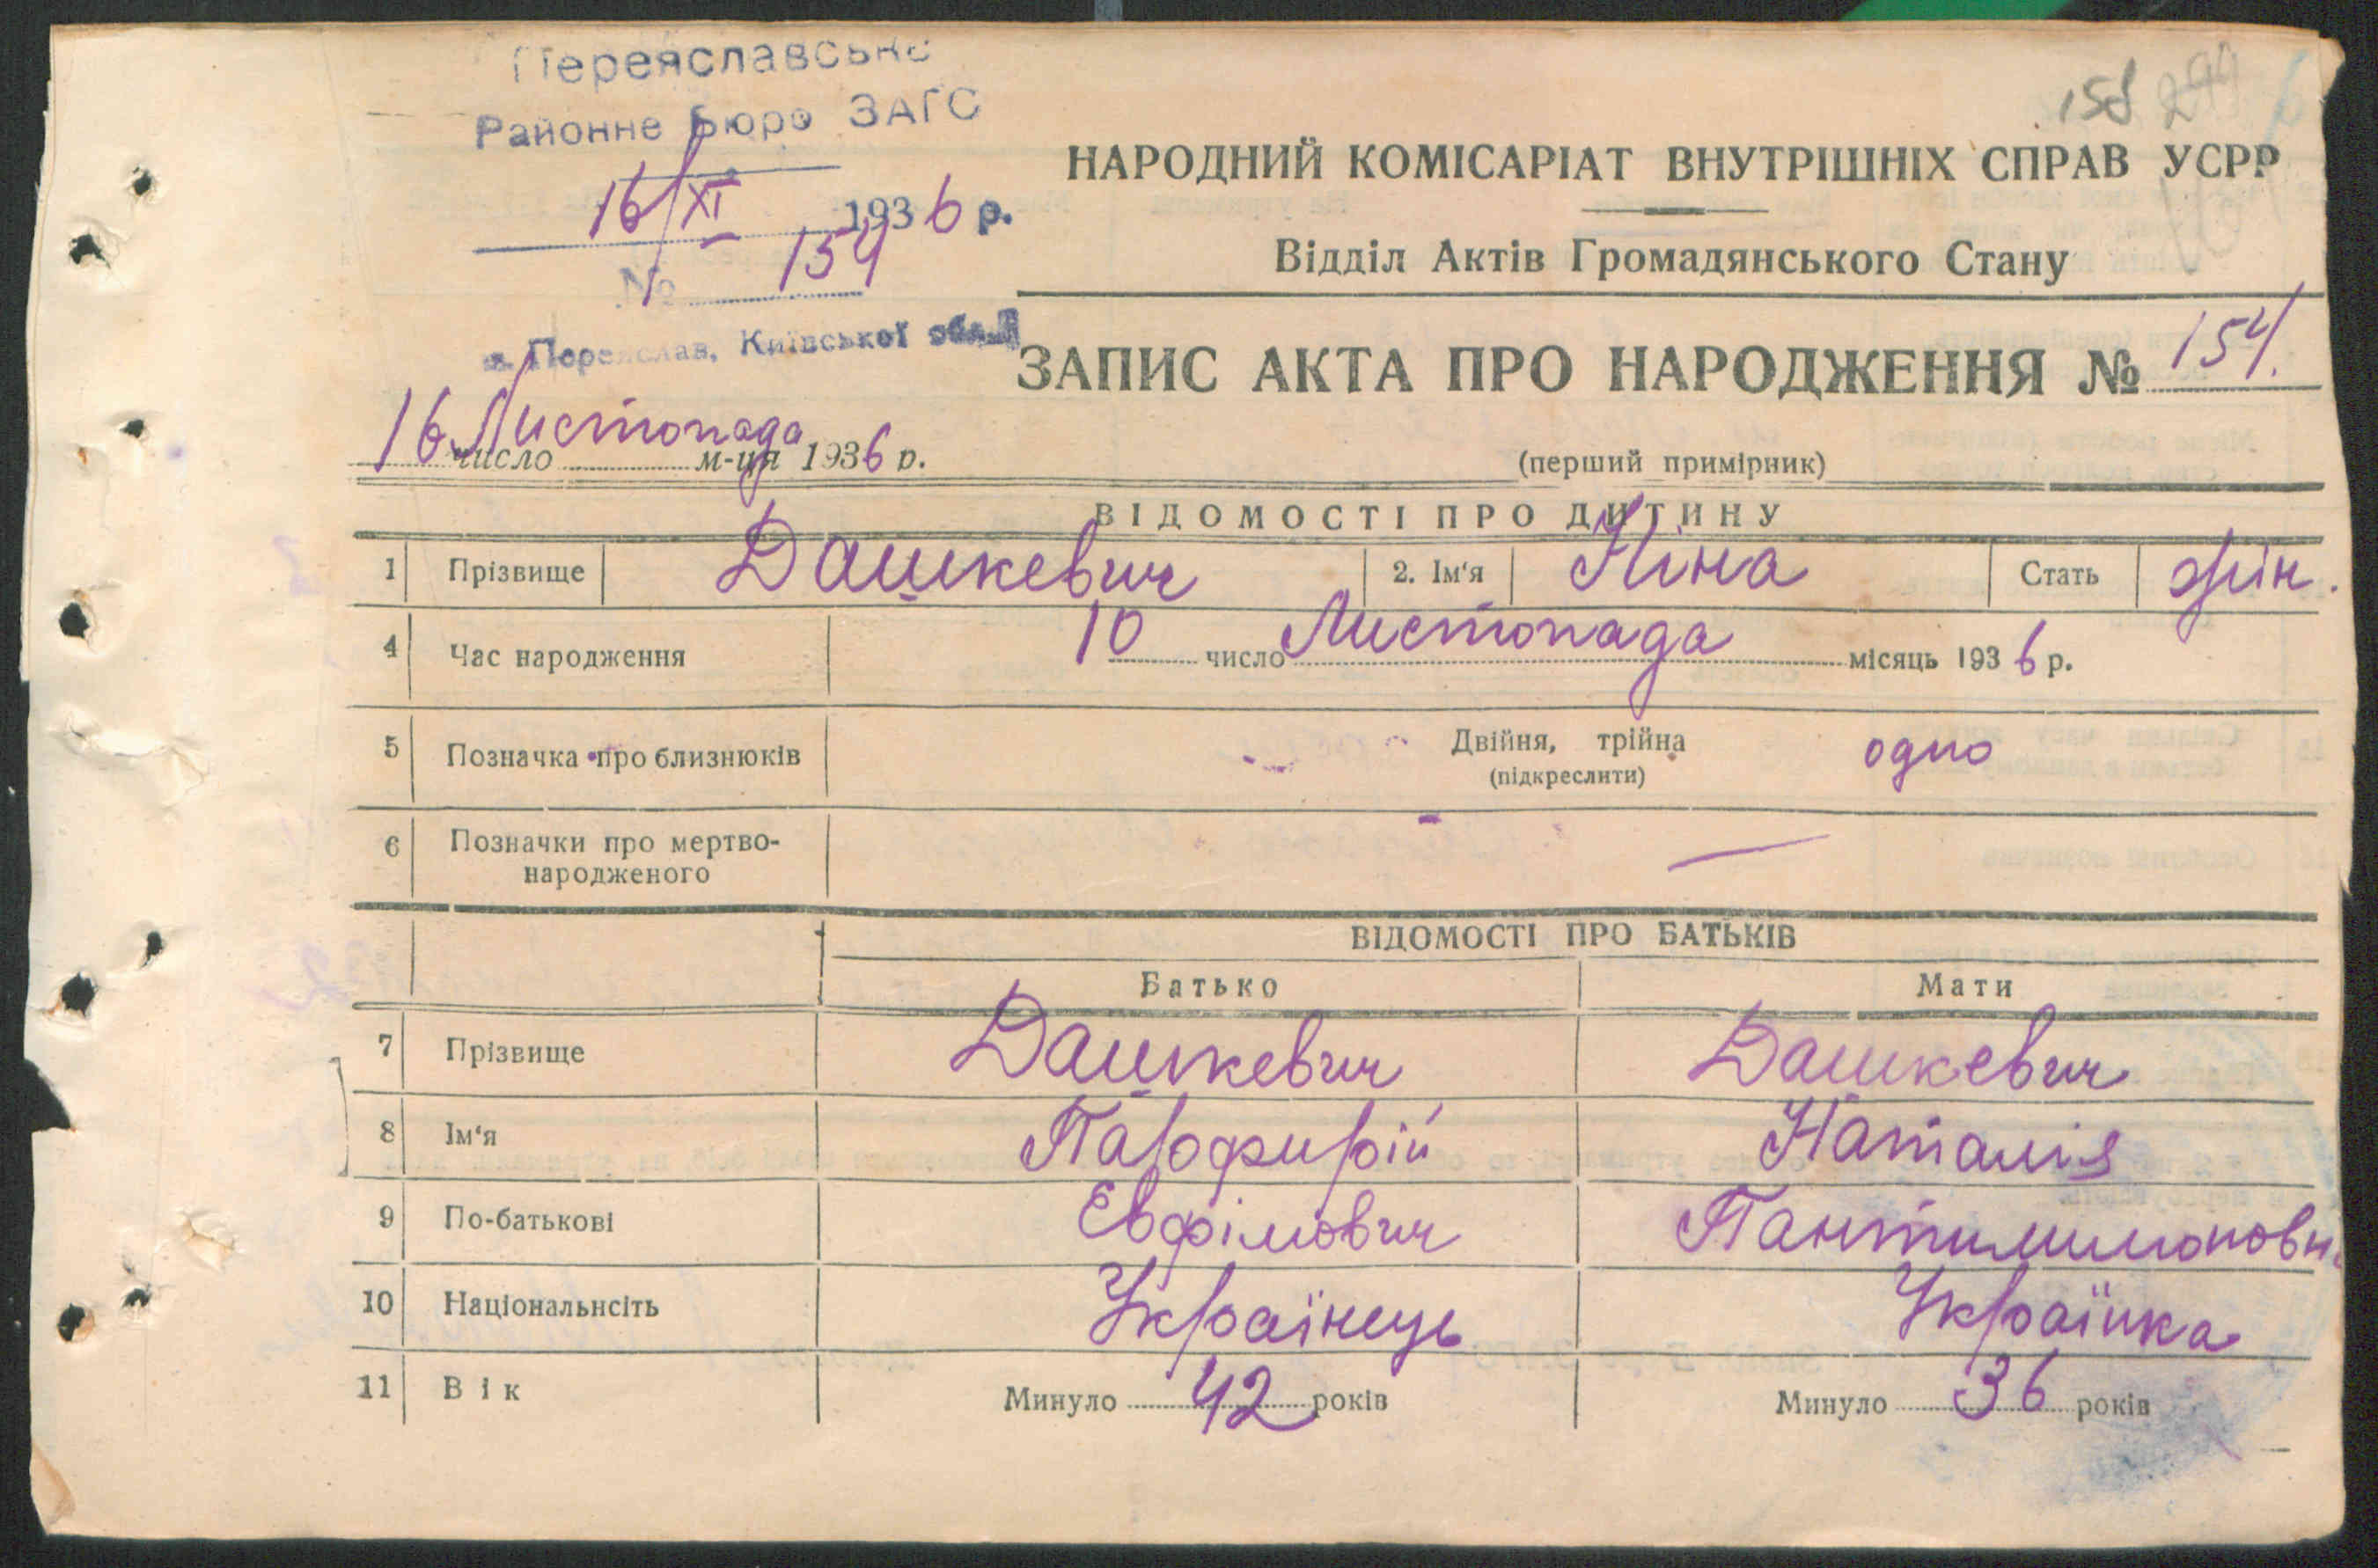 Переяславське
Районне Бюро ЗАГС
16/XI 1936 р.
№ 154
м. Переяслав, Київської обл.
158 244
НАРОДНИЙ КОМІСАРІАТ ВНУТРІШНІХ СПРАВ УСРР
Відділ Актів Громадянського Стану
ЗАПИС АКТА ПРО НАРОДЖЕННЯ № 154.
16 число Листопада м-ця 1936 р.
(перший примірник)
ВІДОМОСТІ ПРО ДИТИНУ
1 Прізвище Дашкевич 2. Ім'я Ніна Стать жін.
4 Час народження 10 число Листопада місяць 1936 р.
5 Позначка про близнюків Двійня, трійна одно
(підкреслити)
6 Позначки про мертво-
народженого —
ВІДОМОСТІ ПРО БАТЬКІВ
Батько Мати
7 Прізвище Дашкевич Дашкевич
8 Ім'я Парфирій Наталія
9 По-батькові Евфімович Пантилимоновн
10 Національнсіть Українець Українка
11 Вік Минуло 42 років Минуло 36 років